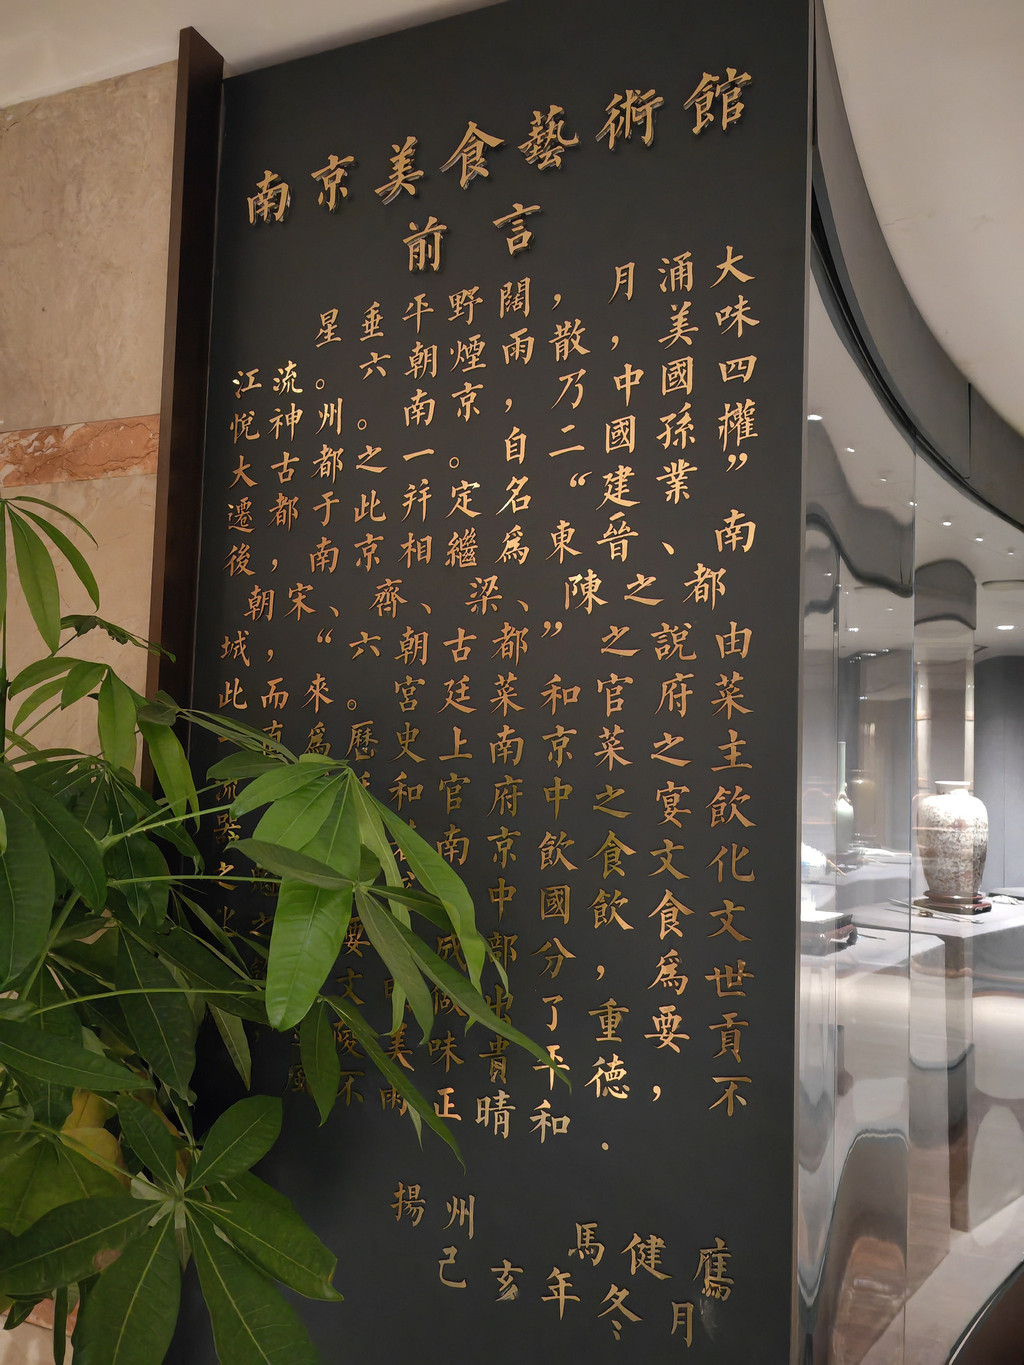 南京美食藝術館
前言
星垂平野闊，月涌大
江流。六朝煙雨散，美味
悅神州。南京，乃中國四
大古都之一。自二國孫權
遷都于此并定名“建業”
後，南京相繼爲東晉、南
朝宋、齊、梁、陳之都
城，“六朝古都”之說由
此而來。宮廷菜和官府菜
一直爲歷史上南京菜之主
流 和官府中之宴飲
器 南京飲食文化
之 中國飲食文
要 成部分，爲世
文 做出了重要貢
陵美味貴平德，不
風不雨正晴和.
揚州 馬健鷹
己亥年冬月